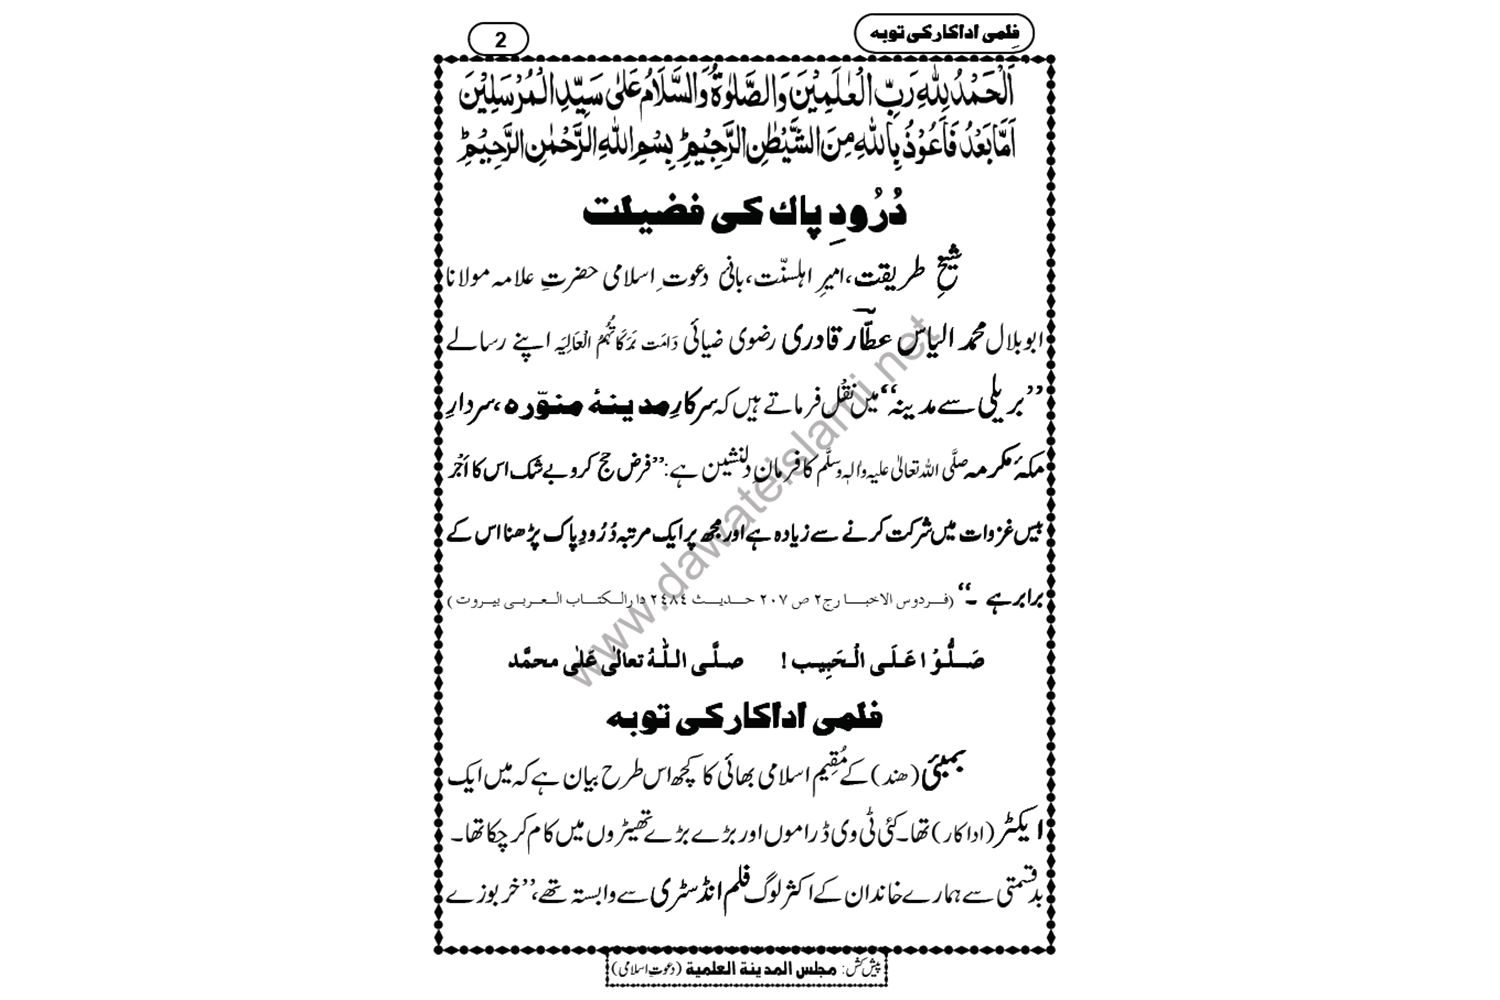 فلمی اداکار کی توبہ
2
اَلْحَمْدُ لِلّٰہِ رَبِّ الْعٰلَمِیْنَ وَالصَّلٰوۃُ وَالسَّلَامُ عَلٰی سَیِّدِ الْمُرْسَلِیْنَ
اَمَّا بَعْدُ فَاَعُوْذُ بِاللّٰہِ مِنَ الشَّیْطٰنِ الرَّجِیْمِ ؕ بِسْمِ اللّٰہِ الرَّحْمٰنِ الرَّحِیْمِ ؕ
دُرُودِ پاک کی فضیلت
شیخِ طریقت، امیرِ اہلسنّت، بانیٔ دعوتِ اسلامی حضرتِ علامہ مولانا
ابو بلال محمد الیاس عطّار قادری رضوی ضیائی دَامَت بَرَکَاتُہُمُ الْعَالِیَہ اپنے رسالے
”بریلی سے مدینہ“ میں نقْل فرماتے ہیں کہ سرکارِ مدینۂ منوّرہ، سردارِ
مکۂ مکرمہ صلَّی اللہ تعالیٰ علیہ واٰلہٖ وسلَّم کا فرمانِ دلنشین ہے: ”فرض حج کرو بے شک اس کا اَجْر
بیس غزوات میں شرکت کرنے سے زیادہ ہے اور مجھ پر ایک مرتبہ دُرُودِ پاک پڑھنا اس کے
برابر ہے ۔“ (فردوس الاخبار ج۲ ص ۲۰۷ حدیث ۲٤۸٤ دارالکتاب العربی بیروت)
صَلُّوْا عَلَی الْحَبِیب ! صلَّی اللّٰہُ تعالیٰ عَلٰی محمَّد
فلمی اداکار کی توبہ
بمبئی (ھند) کے مُقِیم اسلامی بھائی کا کچھ اس طرح بیان ہے کہ میں ایک
ایکٹر (اداکار) تھا۔ کئی ٹی وی ڈراموں اور بڑے بڑے تھیٹروں میں کام کر چکا تھا۔
بدقسمتی سے ہمارے خاندان کے اکثر لوگ فلم انڈسٹری سے وابستہ تھے، ”خربوزے
پیش کش: مجلس المدینۃ العلمیۃ (دعوتِ اسلامی)
www.dawateislami.net